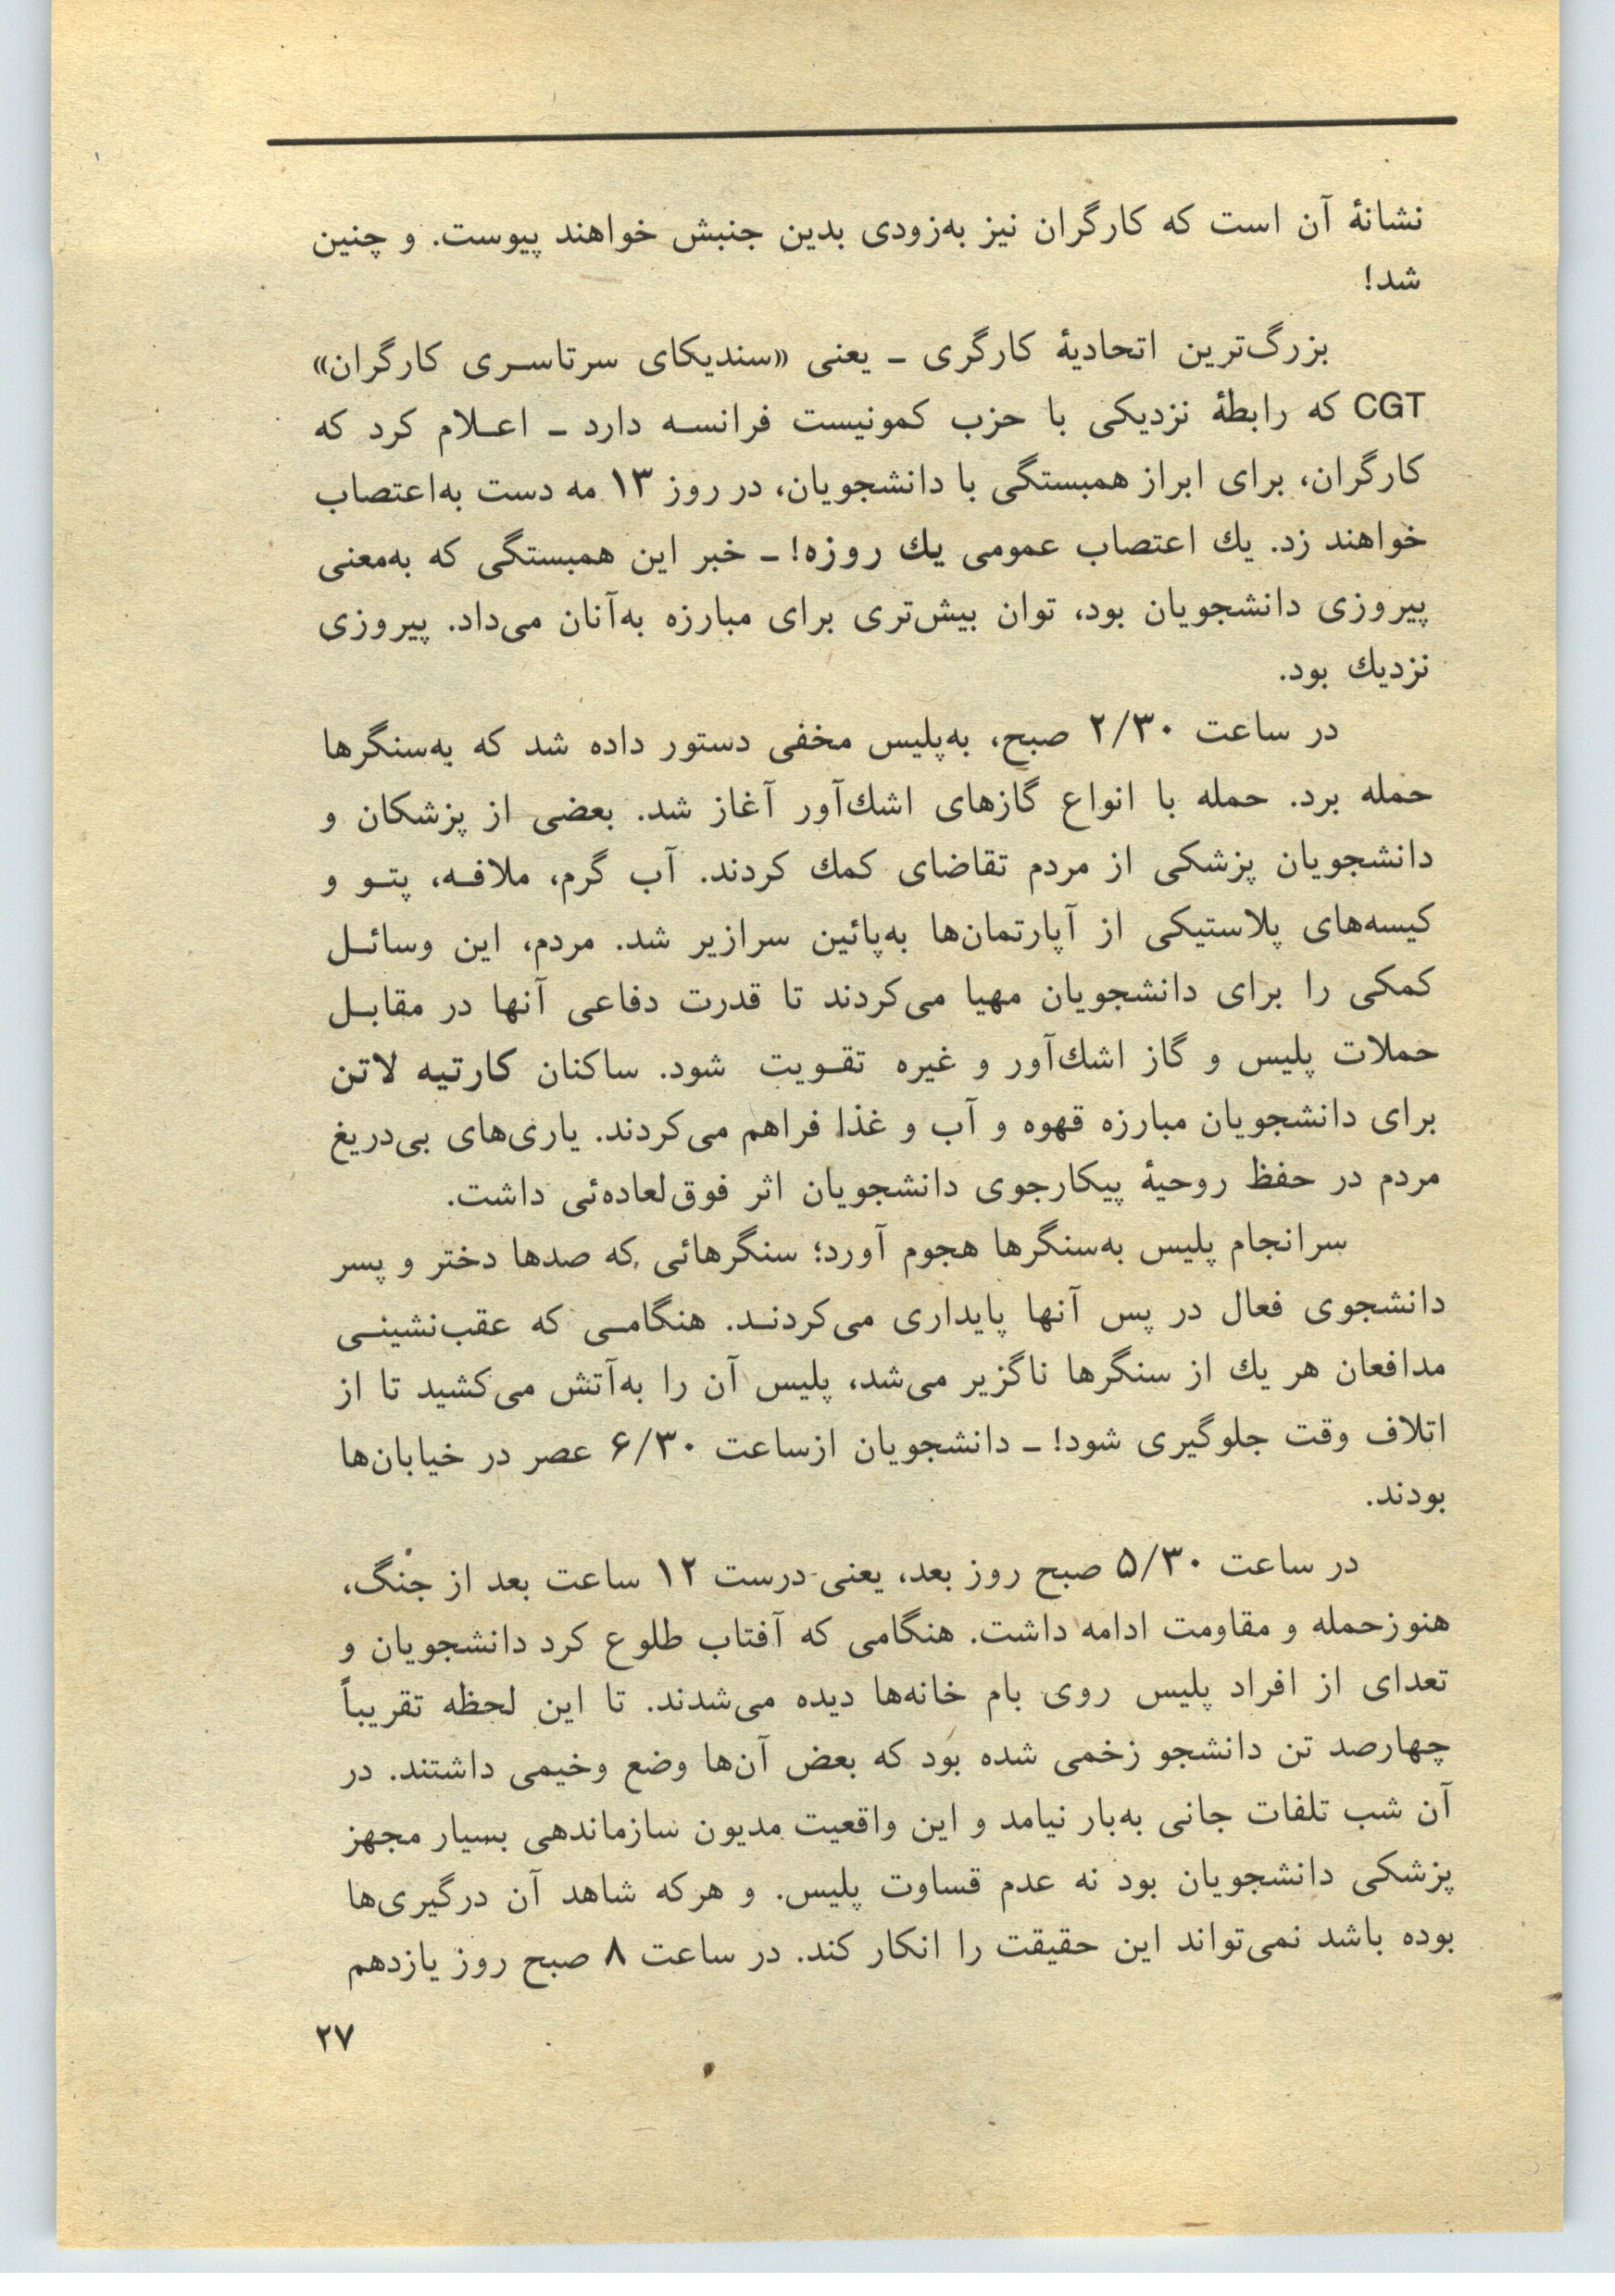 نشانهٔ آن است که کارگران نیز به‌زودی بدین جنبش خواهند پیوست. و چنین
شد!
بزرگ‌ترین اتحادیهٔ کارگری ـ یعنی «سندیکای سرتاسری کارگران»
CGT که رابطهٔ نزدیکی با حزب کمونیست فرانسه دارد ـ اعلام کرد که
کارگران، برای ابراز همبستگی با دانشجویان، در روز ۱۳ مه دست به‌اعتصاب
خواهند زد. یك اعتصاب عمومی یك روزه! ـ خبر این همبستگی که به‌معنی
پیروزی دانشجویان بود، توان بیش‌تری برای مبارزه به‌آنان می‌داد. پیروزی
نزدیك بود.
در ساعت ۲/۳۰ صبح، به‌پلیس مخفی دستور داده شد که به‌سنگرها
حمله برد. حمله با انواع گازهای اشك‌آور آغاز شد. بعضی از پزشکان و
دانشجویان پزشکی از مردم تقاضای کمك کردند. آب گرم، ملافه، پتو و
کیسه‌های پلاستیکی از آپارتمان‌ها به‌پائین سرازیر شد. مردم، این وسائل
کمکی را برای دانشجویان مهیا می‌کردند تا قدرت دفاعی آنها در مقابل
حملات پلیس و گاز اشك‌آور و غیره تقویت شود. ساکنان کارتیه لاتن
برای دانشجویان مبارزه قهوه و آب و غذا فراهم می‌کردند. یاری‌های بی‌دریغ
مردم در حفظ روحیهٔ پیکارجوی دانشجویان اثر فوق‌لعاده‌ئی داشت.
سرانجام پلیس به‌سنگرها هجوم آورد؛ سنگرهائی که صدها دختر و پسر
دانشجوی فعال در پس آنها پایداری می‌کردند. هنگامی که عقب‌نشینی
مدافعان هر یك از سنگرها ناگزیر می‌شد، پلیس آن را به‌آتش می‌کشید تا از
اتلاف وقت جلوگیری شود! ـ دانشجویان ازساعت ۶/۳۰ عصر در خیابان‌ها
بودند.
در ساعت ۵/۳۰ صبح روز بعد، یعنی درست ۱۲ ساعت بعد از جنگ،
هنوزحمله و مقاومت ادامه داشت. هنگامی که آفتاب طلوع کرد دانشجویان و
تعدای از افراد پلیس روی بام خانه‌ها دیده می‌شدند. تا این لحظه تقریباً
چهارصد تن دانشجو زخمی شده بود که بعض آن‌ها وضع وخیمی داشتند. در
آن شب تلفات جانی به‌بار نیامد و این واقعیت مدیون سازماندهی بسیار مجهز
پزشکی دانشجویان بود نه عدم قساوت پلیس. و هرکه شاهد آن درگیری‌ها
بوده باشد نمی‌تواند این حقیقت را انکار کند. در ساعت ۸ صبح روز یازدهم
۲۷